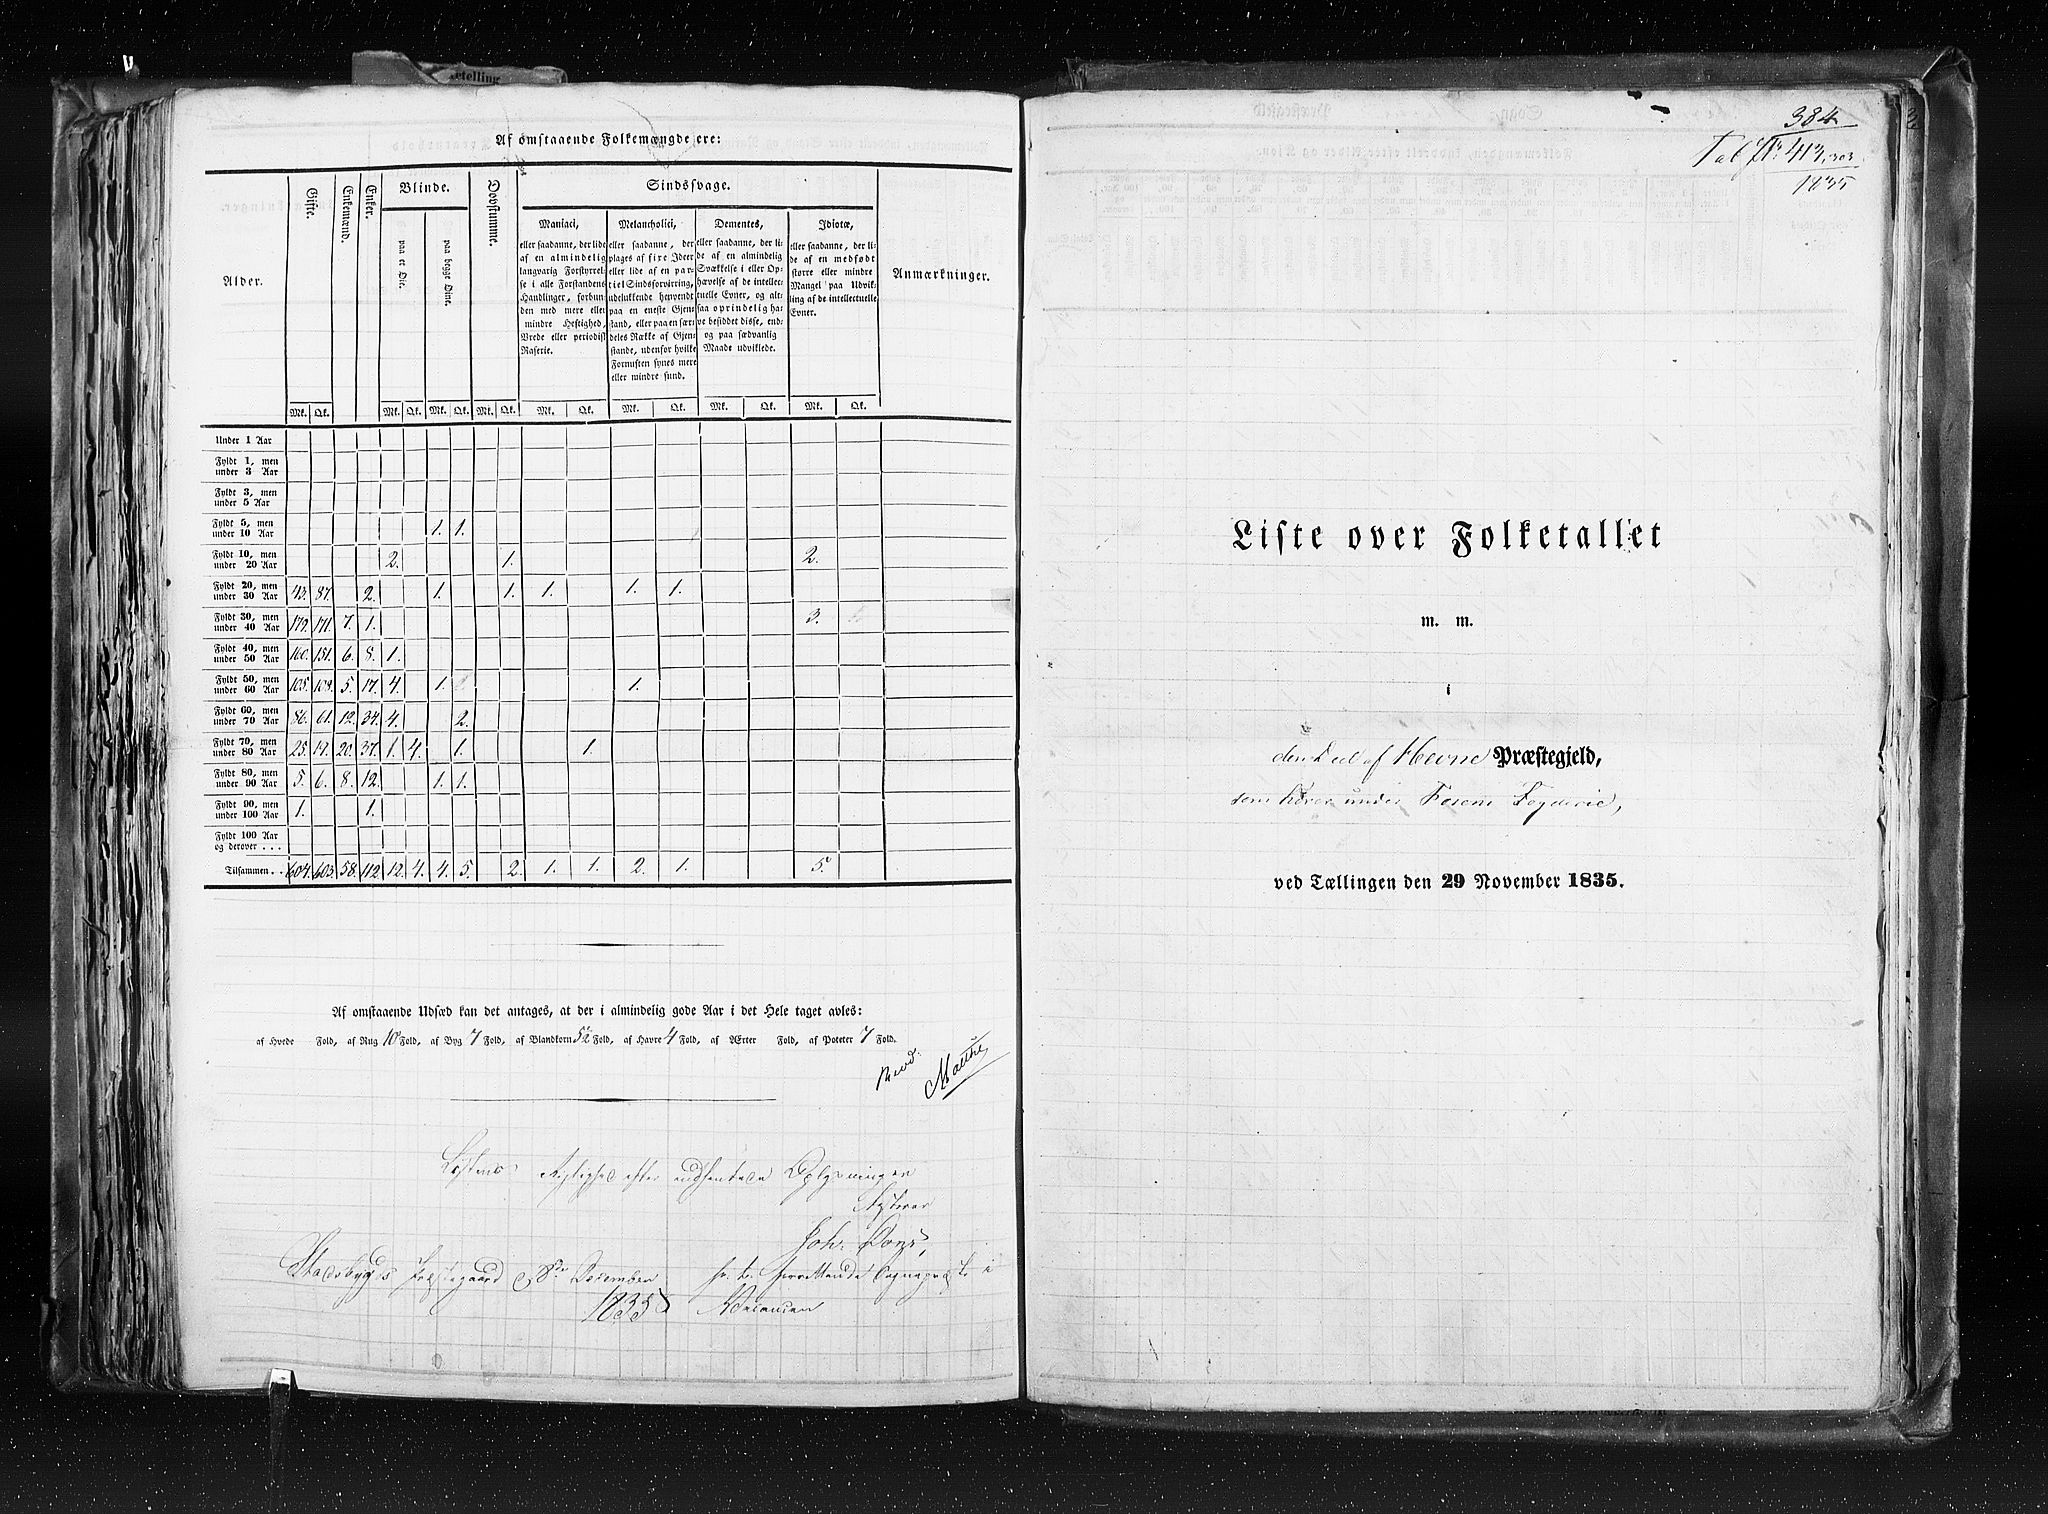 ætelling
Af omstaaende Folkemængde ere:
Alder. Gifte. Enkemænd. Enker. Blinde. Døvstumme. Sindssvage. Anmærkninger.
paa et Øie. paa begge Øine.
Maniaci,
eller saadanne, der lide
af en almindelig
langvarig Forstyrrel-
se i alle Forstandens
Handlinger, forbun-
den med mere eller
mindre Heftighed,
Vrede eller periodisk
Raserie.
Melancholici,
eller saadanne, der
plages af fixe Ideer
eller lide af en par-
tiel Sindsforvirring,
udelukkende henvendt
paa en eneste Gjen-
stand, eller paa en sær-
deles Række af Gjen-
stande, udenfor hvilke
Fornuften synes mere
eller mindre sund.
Dementes,
eller saadanne, der li-
de af en almindelig
Svækkelse i eller Op-
hævelse af de intellec-
tuelle Evner, og alt-
saa oprindelig ha-
ve besiddet disse, end-
og paa sædvanlig
Maade udviklede.
Idiotæ,
eller saadanne, der li-
de af en medfødt
større eller mindre
Mangel paa Udvik-
ling af de intellectuelle
Evner.
Mk. Qk. Mk. Qk. Mk. Qk. Mk. Qk. Mk. Qk. Mk. Qk. Mk. Qk. Mk. Qk.
Under 1 Aar
Fyldt 1, men
under 3 Aar
Fyldt 3, men
under 5 Aar
Fyldt 5, men
under 10 Aar 1. 1.
Fyldt 10, men
under 20 Aar 2. 1. 2.
Fyldt 20, men
under 30 Aar 43. 87. 2. 1. 1. 1. 1. 1.
Fyldt 30, men
under 40 Aar 179. 171. 7. 1. 3.
Fyldt 40, men
under 50 Aar 160. 151. 6. 8. 1.
Fyldt 50, men
under 60 Aar 105. 108. 5. 17. 4. 1. 1.
Fyldt 60, men
under 70 Aar 86. 61. 12. 34. 4. 2.
Fyldt 70, men
under 80 Aar 25. 19. 20. 37. 1. 4. 1. 1.
Fyldt 80, men
under 90 Aar 5. 6. 8. 12. 1. 1.
Fyldt 90, men
under 100 Aar 1. 1.
Fyldt 100 Aar
og derover . . .
Tilsammen . . 604. 603. 58. 112. 12. 4. 4. 5. 2. 1. 1. 2. 1. 5.
Af omstaaende Udsæd kan det antages, at der i almindelig gode Aar i det Hele taget avles:
af Hvede Fold, af Rug 10 Fold, af Byg 7 Fold, af Blandkorn 5½ Fold, af Havre 4 Fold, af Ærter Fold, af Poteter 7 Fold.
Revd.
Malthe
Listens Rigtighed efter indhentede Oplysninger
Attesterer
Joh:
Stadsbygds Præstegaard 8de December
1835
Vacancen
384
Tab Nr 413, 303
1835
Liste over Folketallet
m. m.
i
den Deel af Hevne Præstegjeld,
som hører under Fosens Fogderie,
ved Tællingen den 29 November 1835.